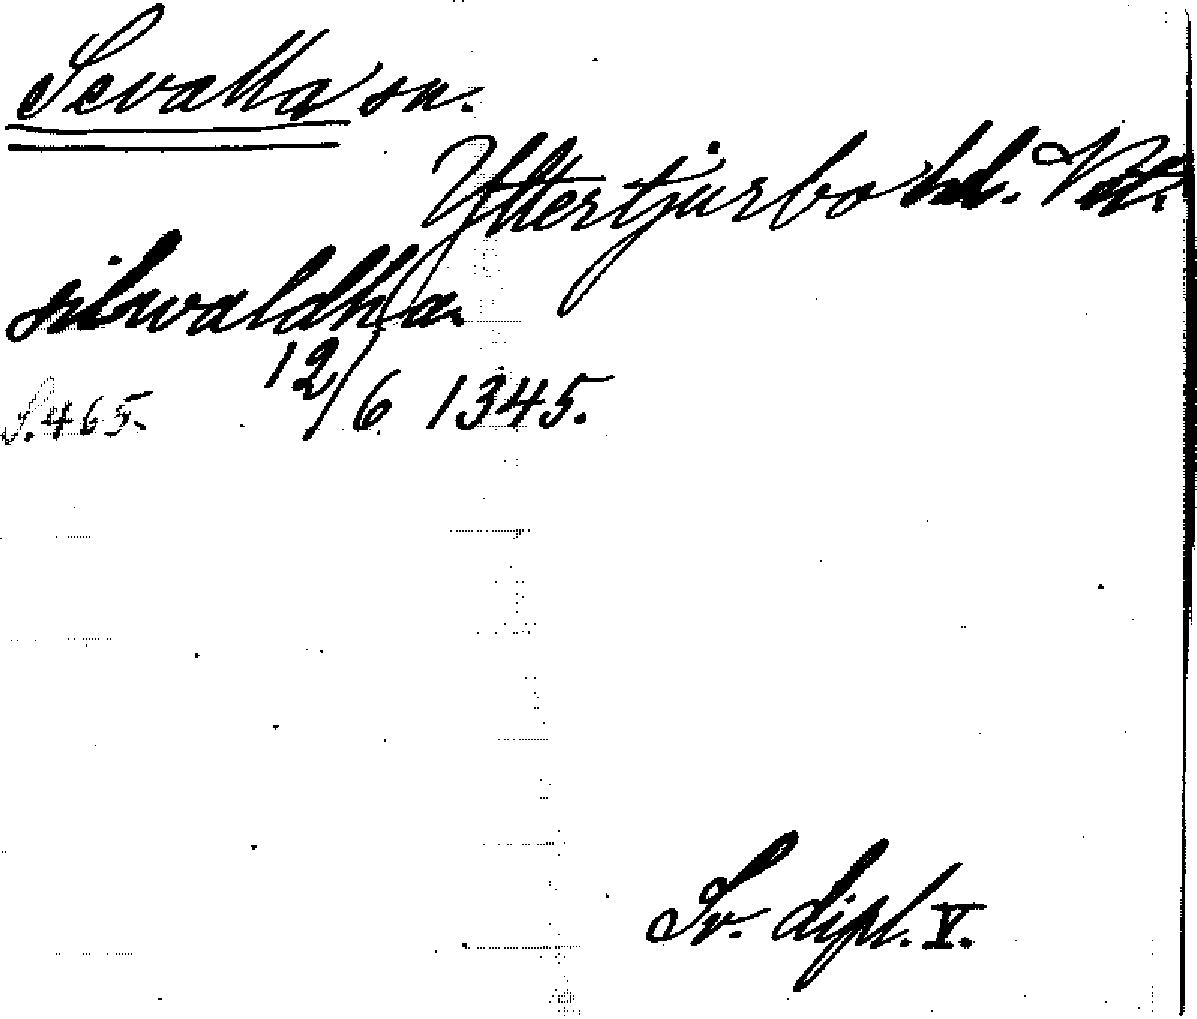 Sevalla sn.
Yttertjurbo hd. Vstm.
siłwaldha
12/6 1345.
S. 465.
Sv. dipl. V.